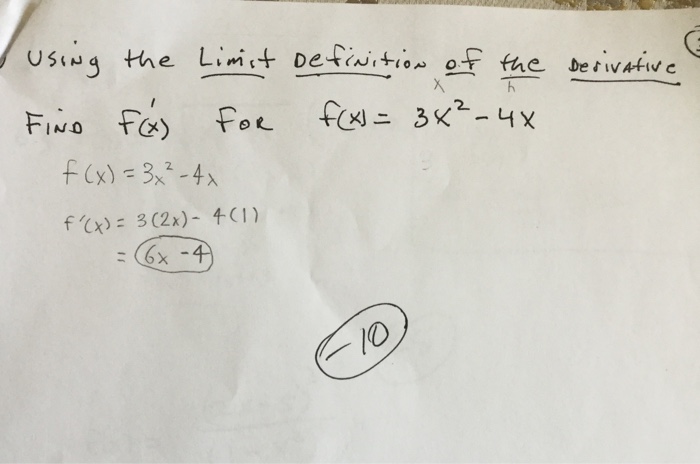 Using the Limit Definition of the Derivative
x h
Find f'(x) for f(x) = 3x² - 4x
f(x) = 3x² - 4x
f'(x) = 3(2x) - 4(1)
= 6x - 4
-10